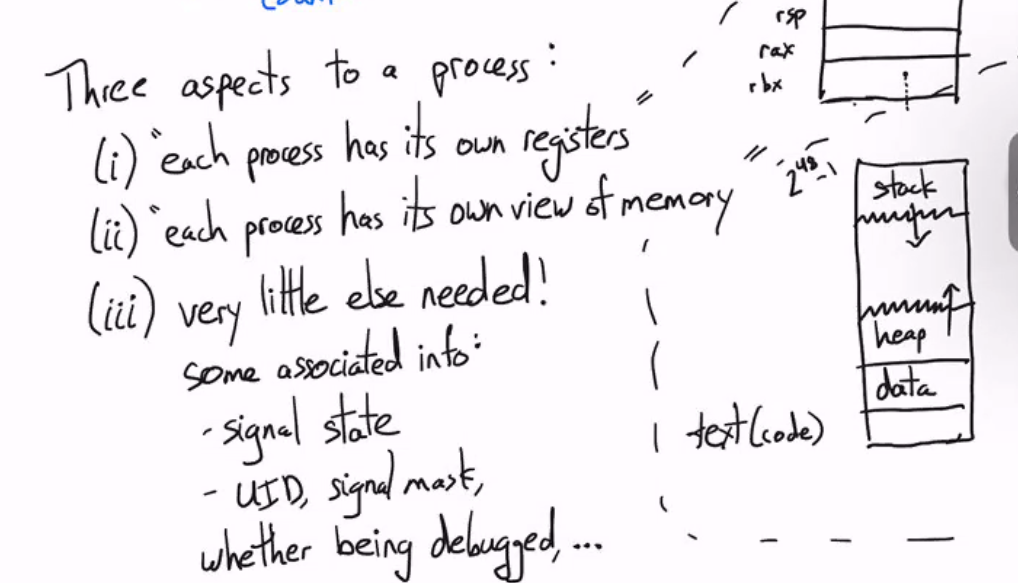 Three aspects to a process:
(i) "each process has its own registers"
(ii) "each process has its own view of memory"
(iii) very little else needed!
some associated info:
- signal state
- UID, signal mask,
whether being debugged, ...
rsp
rax
rbx
2^48-1
stack
heap
data
text (code)